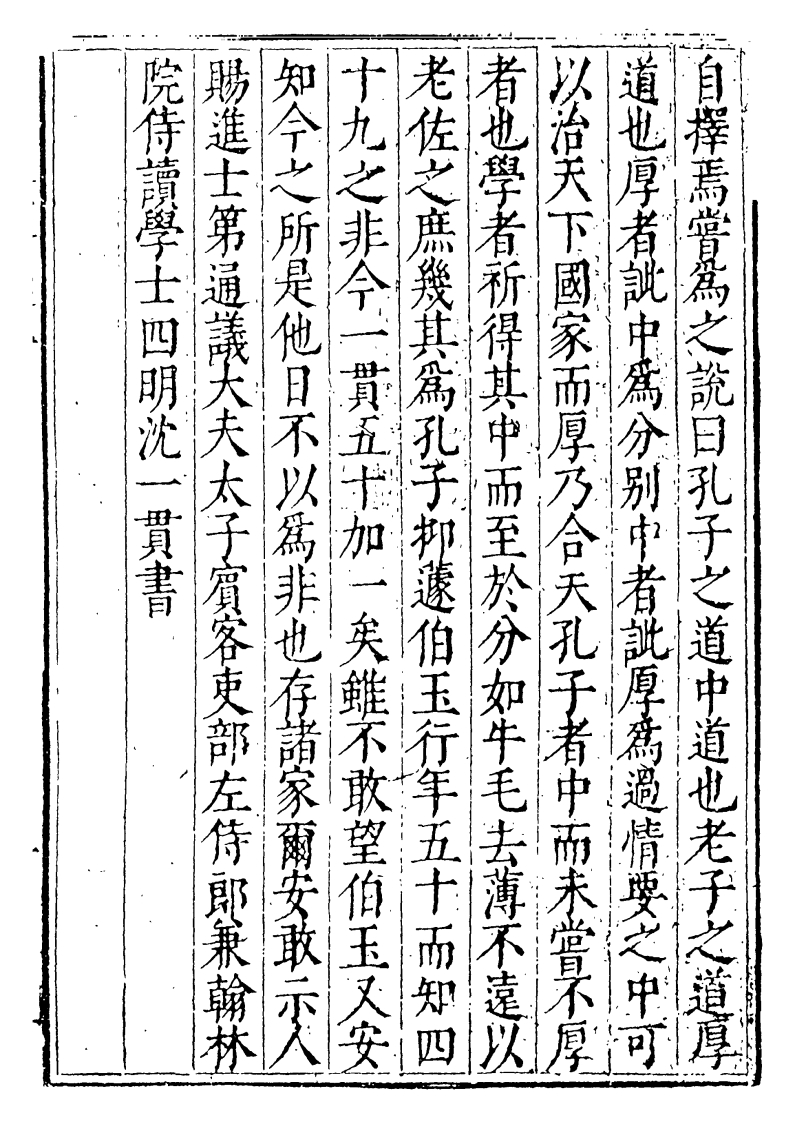 自擇焉嘗爲之說曰孔子之道中道也老子之道厚
道也厚者訿中爲分别中者訿厚爲過情要之中可
以治天下國家而厚乃合天孔子者中而未嘗不厚
者也學者祈得其中而至於分如牛毛去薄不遠以
老佐之庶幾其爲孔子抑蘧伯玉行年五十而知四
十九之非今一貫五十加一矣雖不敢望伯玉又安
知今之所是他日不以爲非也存諸家爾安敢示人
賜進士第通議大夫太子賓客吏部左侍郎兼翰林
院侍讀學士四明沈一貫書